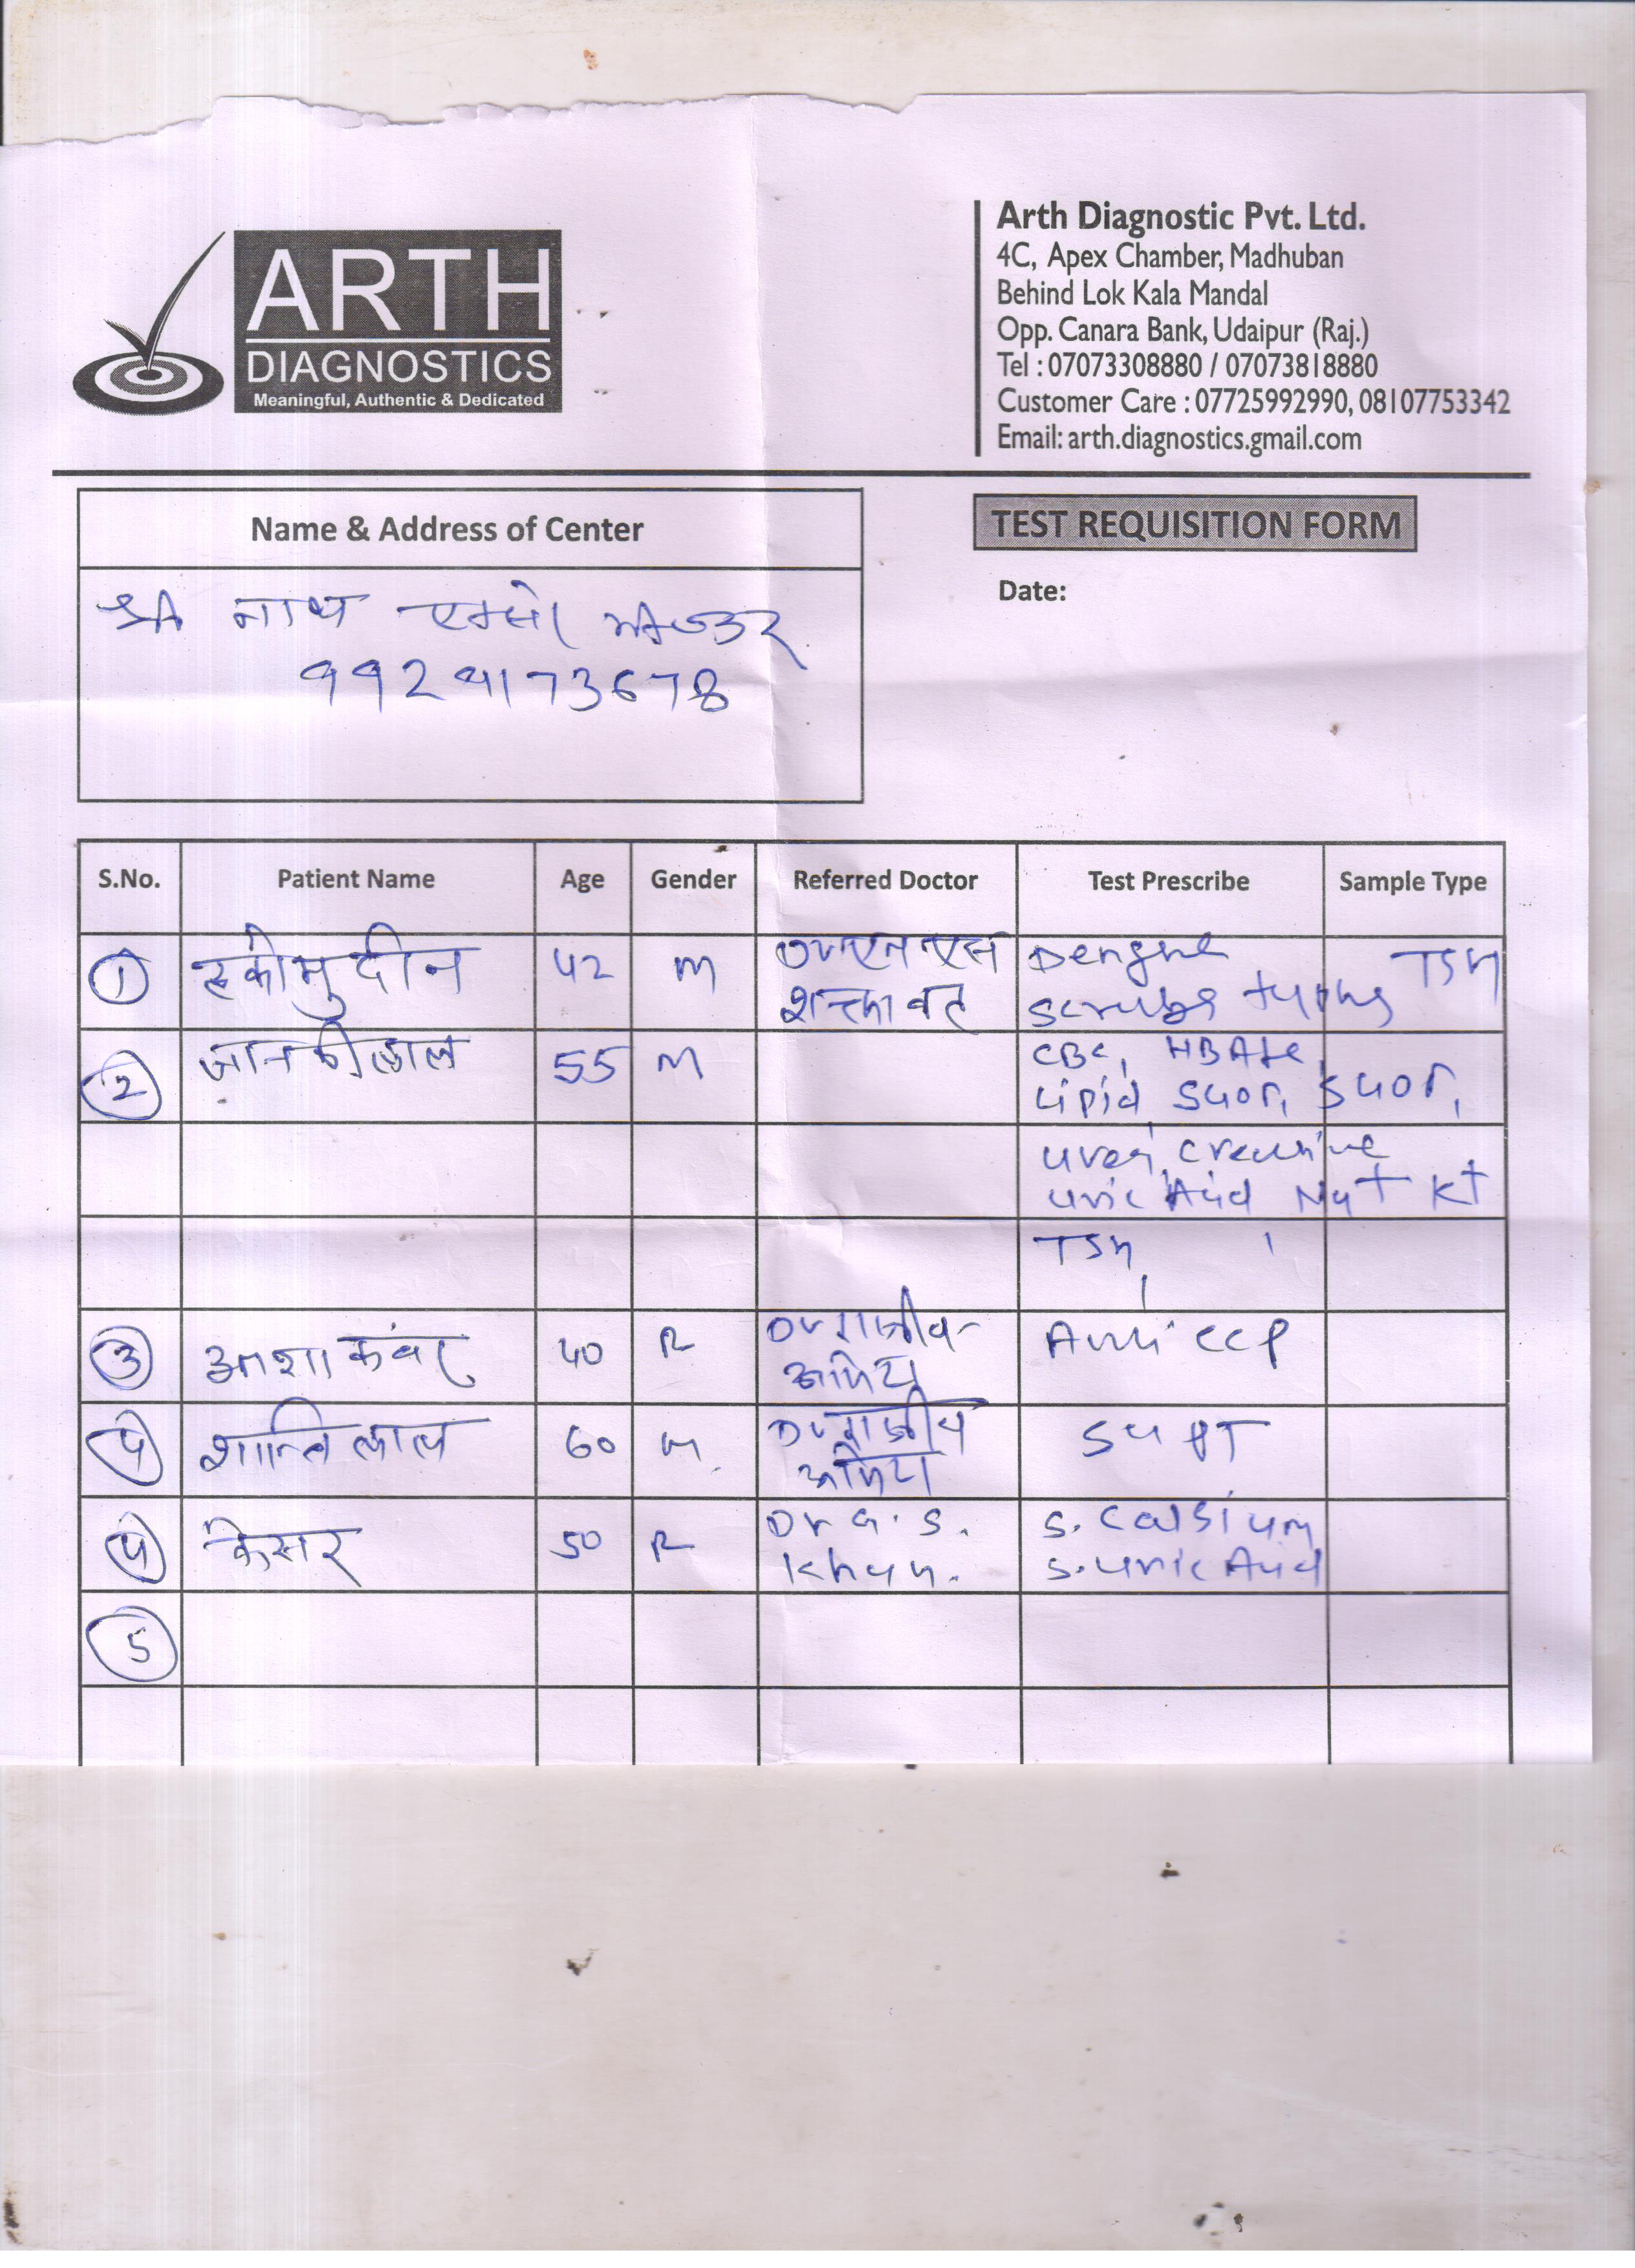 ARTH
DIAGNOSTICS
Meaningful, Authentic & Dedicated
Arth Diagnostic Pvt. Ltd.
4C, Apex Chamber, Madhuban
Behind Lok Kala Mandal
Opp. Canara Bank, Udaipur (Raj.)
Tel : 07073308880 / 07073818880
Customer Care : 07725992990, 08107753342
Email: arth.diagnostics.gmail.com
Name & Address of Center
TEST REQUISITION FORM
Date:
श्री नाथ
S.No. Patient Name Age Gender Referred Doctor Test Prescribe Sample Type
1 42 M Dengue TSH
शक्तावत
2 जानकीलाल 55 M CBC, HBA1c,
Lipid
Urea,
Uric Acid Na+ K+
TSH,
3 आशा कंवर 40 Dr राजीव Anti CCP
4 शान्ति लाल 60 M Dr राजीव
4 केसर 50 Dr G. S. S. Calsium
Khan. S. Uric Acid
5